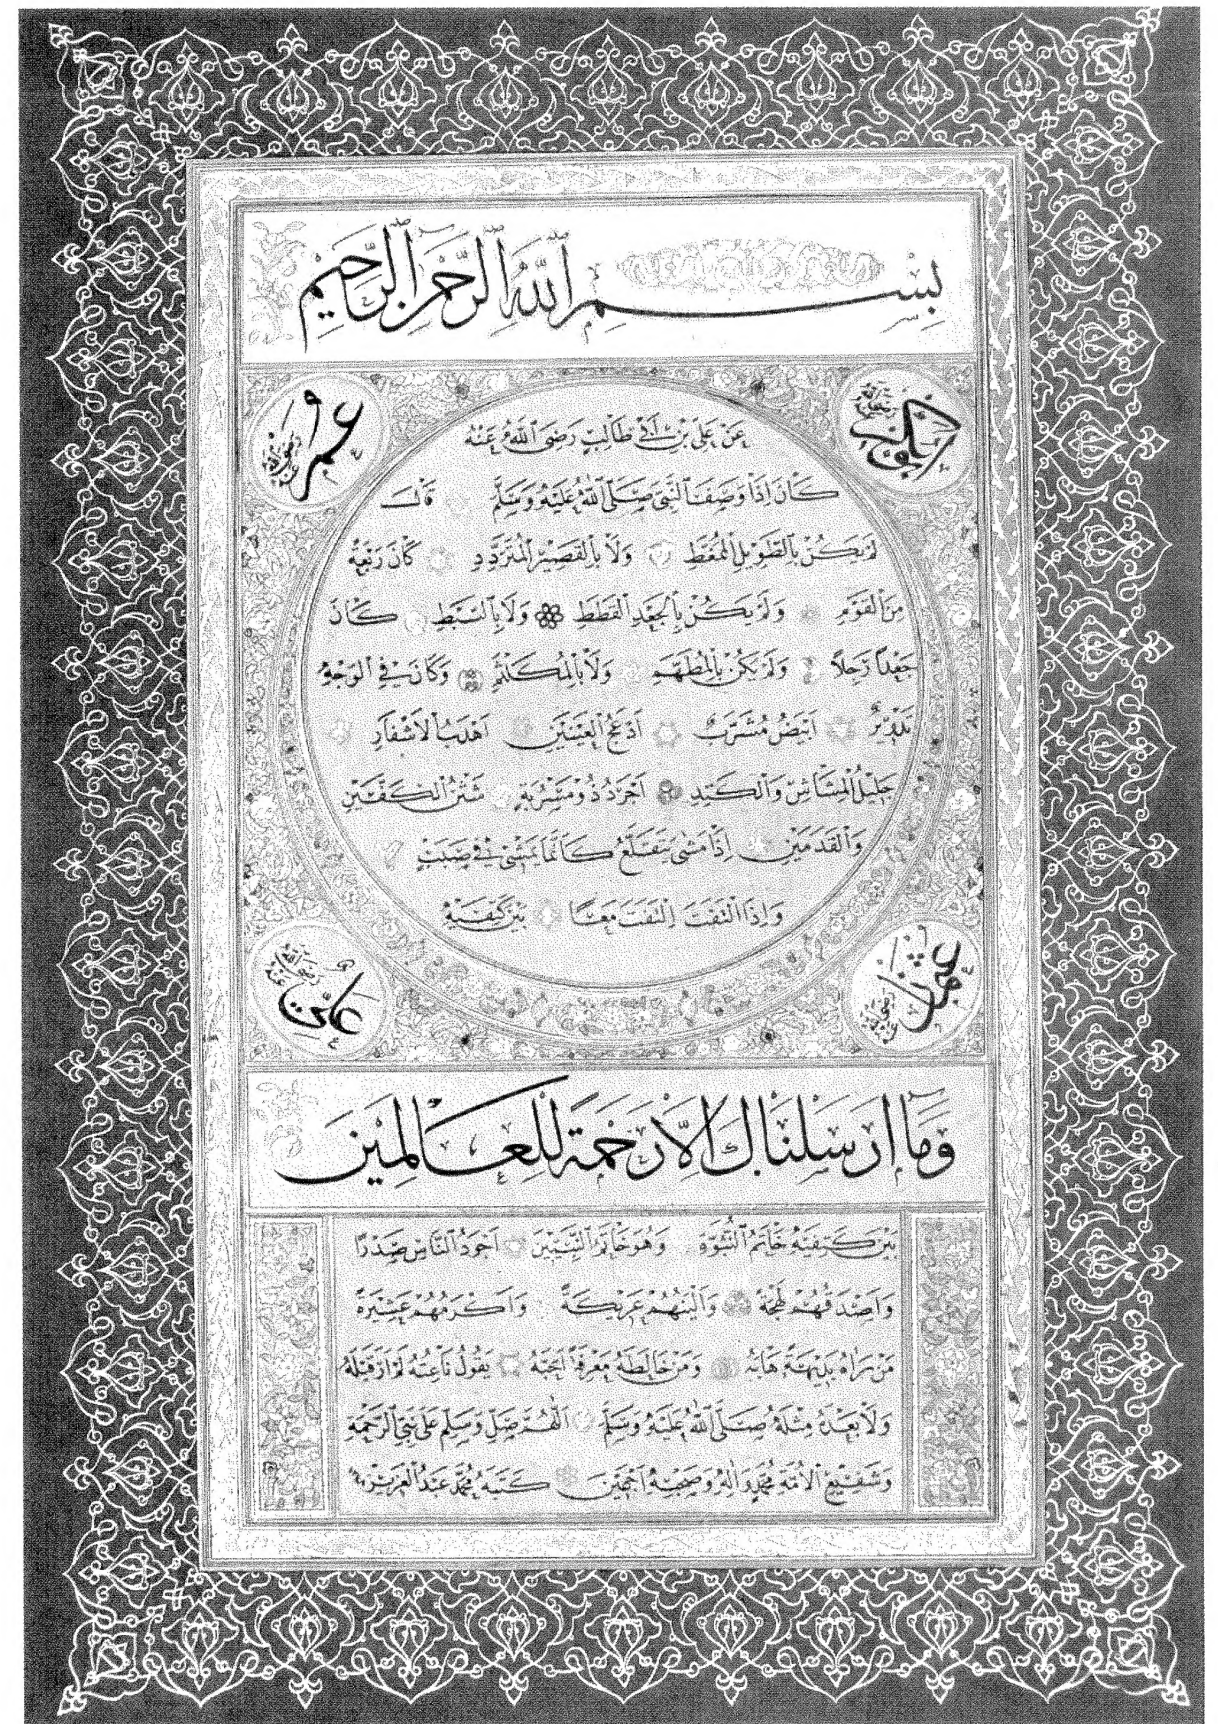 بِسْمِ اللّٰهِ الرَّحْمٰنِ الرَّحِيمِ
ابوبكر رضي الله عنه
عُمَر رضي الله عنه
عَنْ عَلِيِّ بْنِ أَبِي طَالِبٍ رَضِيَ اللّٰهُ عَنْهُ
كَانَ اِذَا وَصَفَ النَّبِيَّ صَلَّى اللّٰهُ عَلَيْهِ وَسَلَّمَ قَالَ
لَمْ يَكُنْ بِالطَّوِيلِ الْمُمَّغِطِ وَلَا بِالْقَصِيرِ الْمُتَرَدِّدِ كَانَ رَبْعَةً
مِنَ الْقَوْمِ وَلَمْ يَكُنْ بِالْجَعْدِ الْقَطَطِ وَلَا بِالسَّبْطِ كَانَ
جَعْدًا رَجِلًا وَلَمْ يَكُنْ بِالْمُطَهَّمِ وَلَا بِالْمُكَلْثَمِ وَكَانَ فِي الْوَجْهِ
تَدْوِيرٌ اَبْيَضُ مُشْرَبٌ اَدْعَجُ الْعَيْنَيْنِ اَهْدَبُ الْاَشْفَارِ
جَلِيلُ الْمُشَاشِ وَالْكَتَدِ اَجْرَدُ ذُو مَسْرُبَةٍ شَثْنُ الْكَفَّيْنِ
وَالْقَدَمَيْنِ اِذَا مَشٰى تَقَلَّعَ كَاَنَّمَا يَمْشِي فِي صَبَبٍ
وَاِذَا الْتَفَتَ اِلْتَفَتَ مَعًا بَيْنَ كَتِفَيْهِ
عثمان رضي الله عنه
علي رضي الله عنه
وَمَا اَرْسَلْنَاكَ اِلَّا رَحْمَةً لِلْعَالَمِينَ
بَيْنَ كَتِفَيْهِ خَاتَمُ النُّبُوَّةِ وَهُوَ خَاتَمُ النَّبِيِّينَ اَجْوَدُ النَّاسِ صَدْرًا
وَاَصْدَقُهُمْ لَهْجَةً وَاَلْيَنُهُمْ عَرِيكَةً وَاَكْرَمُهُمْ عِشْرَةً
مَنْ رَاٰهُ بَدِيهَةً هَابَهُ وَمَنْ خَالَطَهُ مَعْرِفَةً اَحَبَّهُ يَقُولُ نَاعِتُهُ لَمْ اَرَ قَبْلَهُ
وَلَا بَعْدَهُ مِثْلَهُ صَلَّى اللّٰهُ عَلَيْهِ وَسَلَّمَ اَللّٰهُمَّ صَلِّ وَسَلِّمْ عَلٰى نَبِيِّ الرَّحْمَةِ
وَشَفِيعِ الْاُمَّةِ مُحَمَّدٍ وَاٰلِهِ وَصَحْبِهِ اَجْمَعِينَ كَتَبَهُ مُحَمَّد عَبْدُ الْعَزِيز